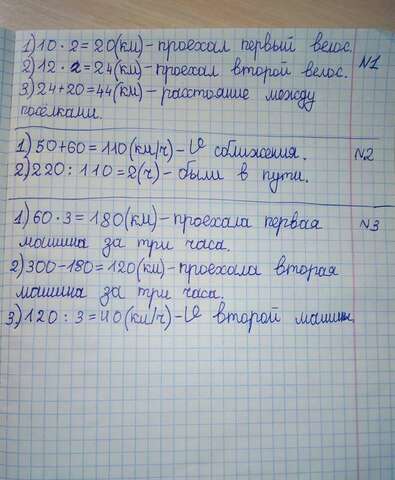 1) 10 · 2 = 20(км) – проехал первый велос. №1
2) 12 · 2 = 24(км) – проехал второй велос.
3) 24+20=44(км) – расстояние между
посёлками.
1) 50+60=110(км/ч) – V сближения. №2
2) 220 : 110=2(ч) – были в пути.
1) 60 · 3=180(км) – проехала первая №3
машина за три часа.
2) 300-180=120(км) – проехала вторая
машина за три часа.
3) 120 : 3=40(км/ч) – V второй машины.